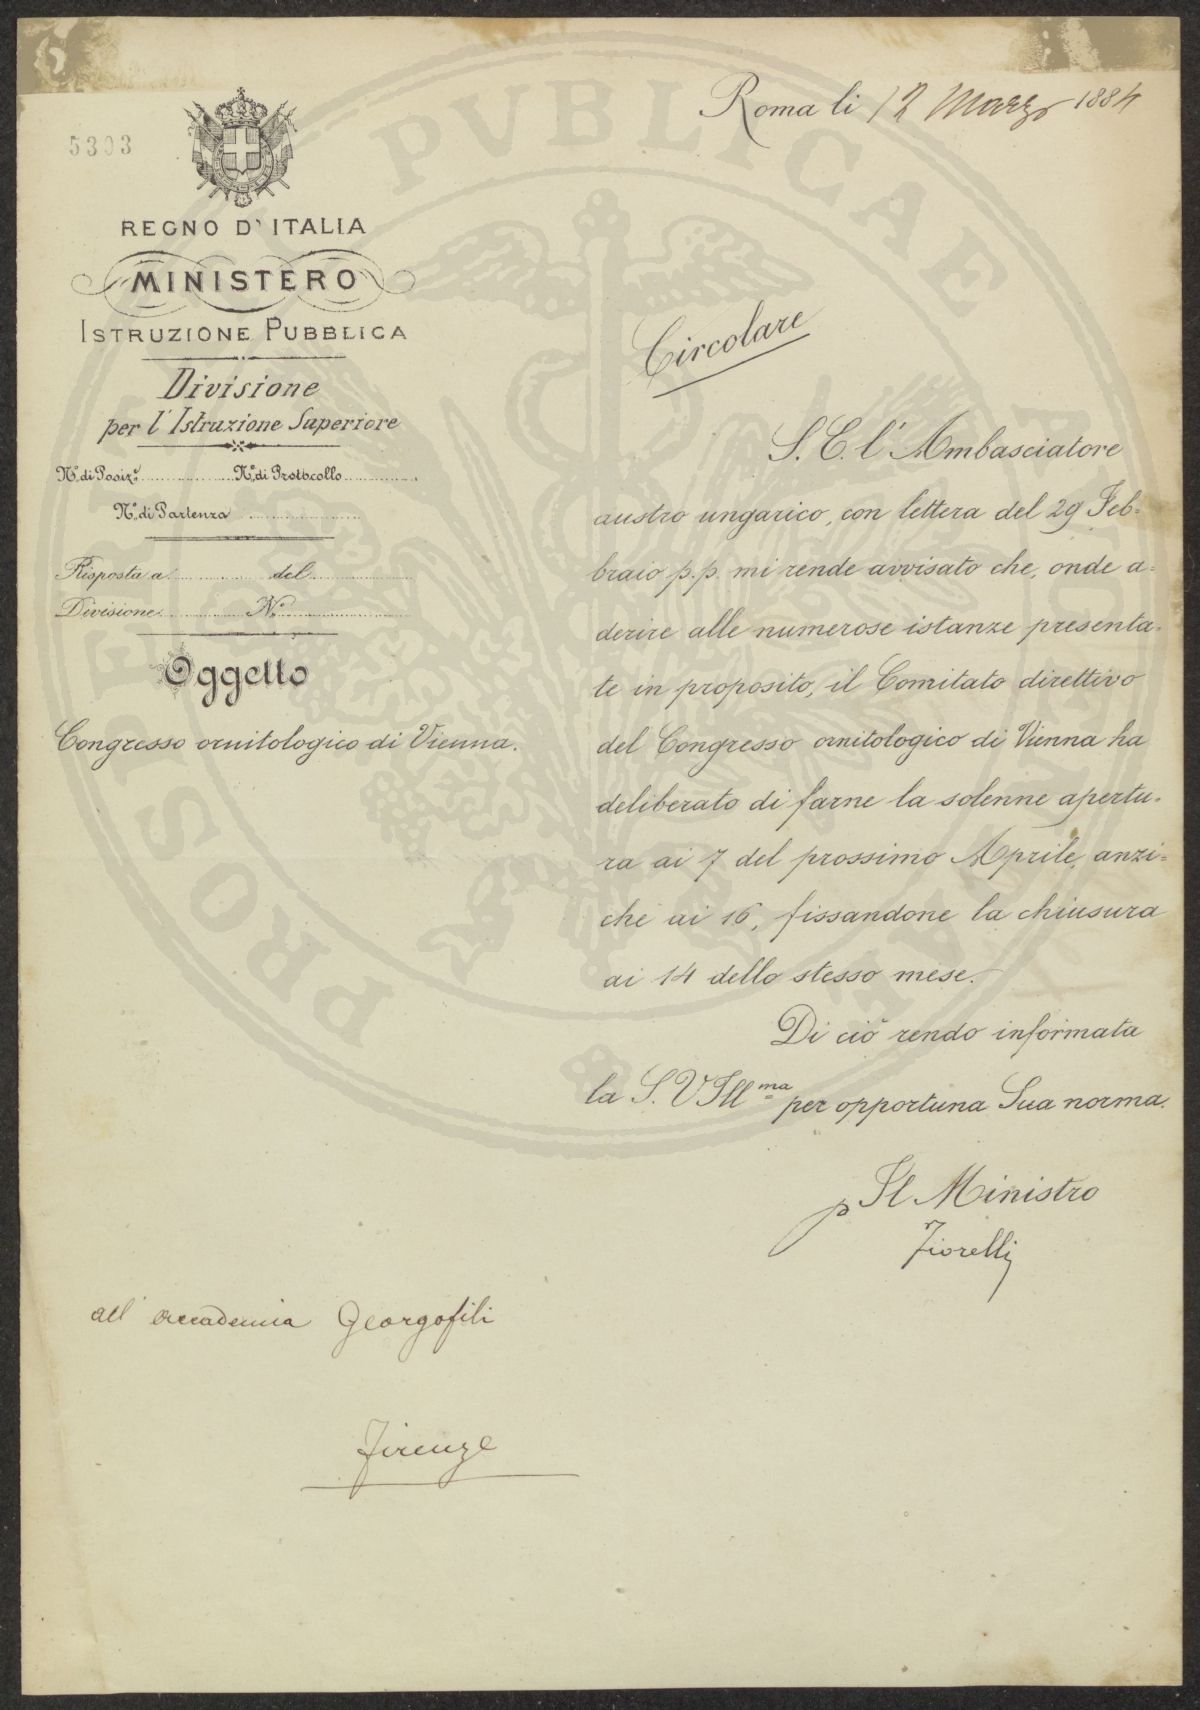 5303
REGNO D'ITALIA
MINISTERO
ISTRUZIONE PUBBLICA
Divisione
per l'Istruzione Superiore
N.º di Posiz.e N.º di Protocollo
N.º di Partenza
Risposta a del
Divisione N.º
Oggetto
Congresso ornitologico di Vienna.
Roma li 12 Marzo 1884
Circolare
S. E. l'Ambasciatore
austro ungarico, con lettera del 29 Feb-
braio p.p. mi rende avvisato che, onde a-
derire alle numerose istanze presenta-
te in proposito, il Comitato direttivo
del Congresso ornitologico di Vienna ha
deliberato di farne la solenne apertu-
ra ai 7 del prossimo Aprile, anzi-
chè ai 16, fissandone la chiusura
ai 14 dello stesso mese.
Di ciò rendo informata
la S. V Ill.ma per opportuna Sua norma.
p Il Ministro
Fiorelli
all' accademia Georgofili
Firenze
PROSPERITATI PVBLICAE AVGENDAE